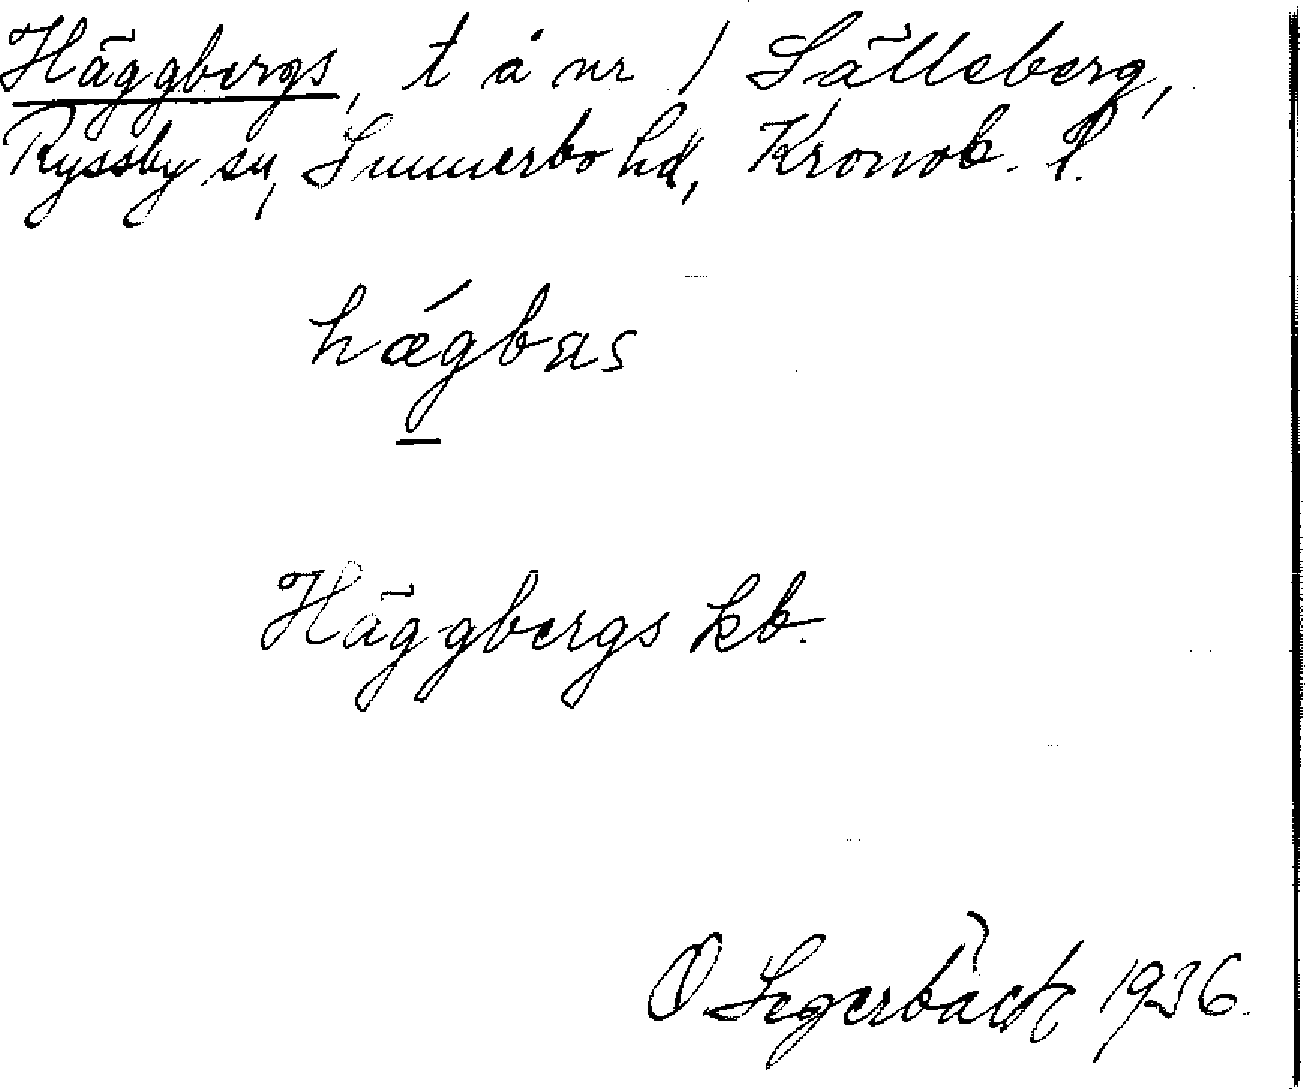 Häggbergs, t å nr 1 Sälleberg,
Ryssby sn, Sunnerbo hd, Kronob. l.
hǽgbas
Häggbergs kb.
O Segerbäck 1936.